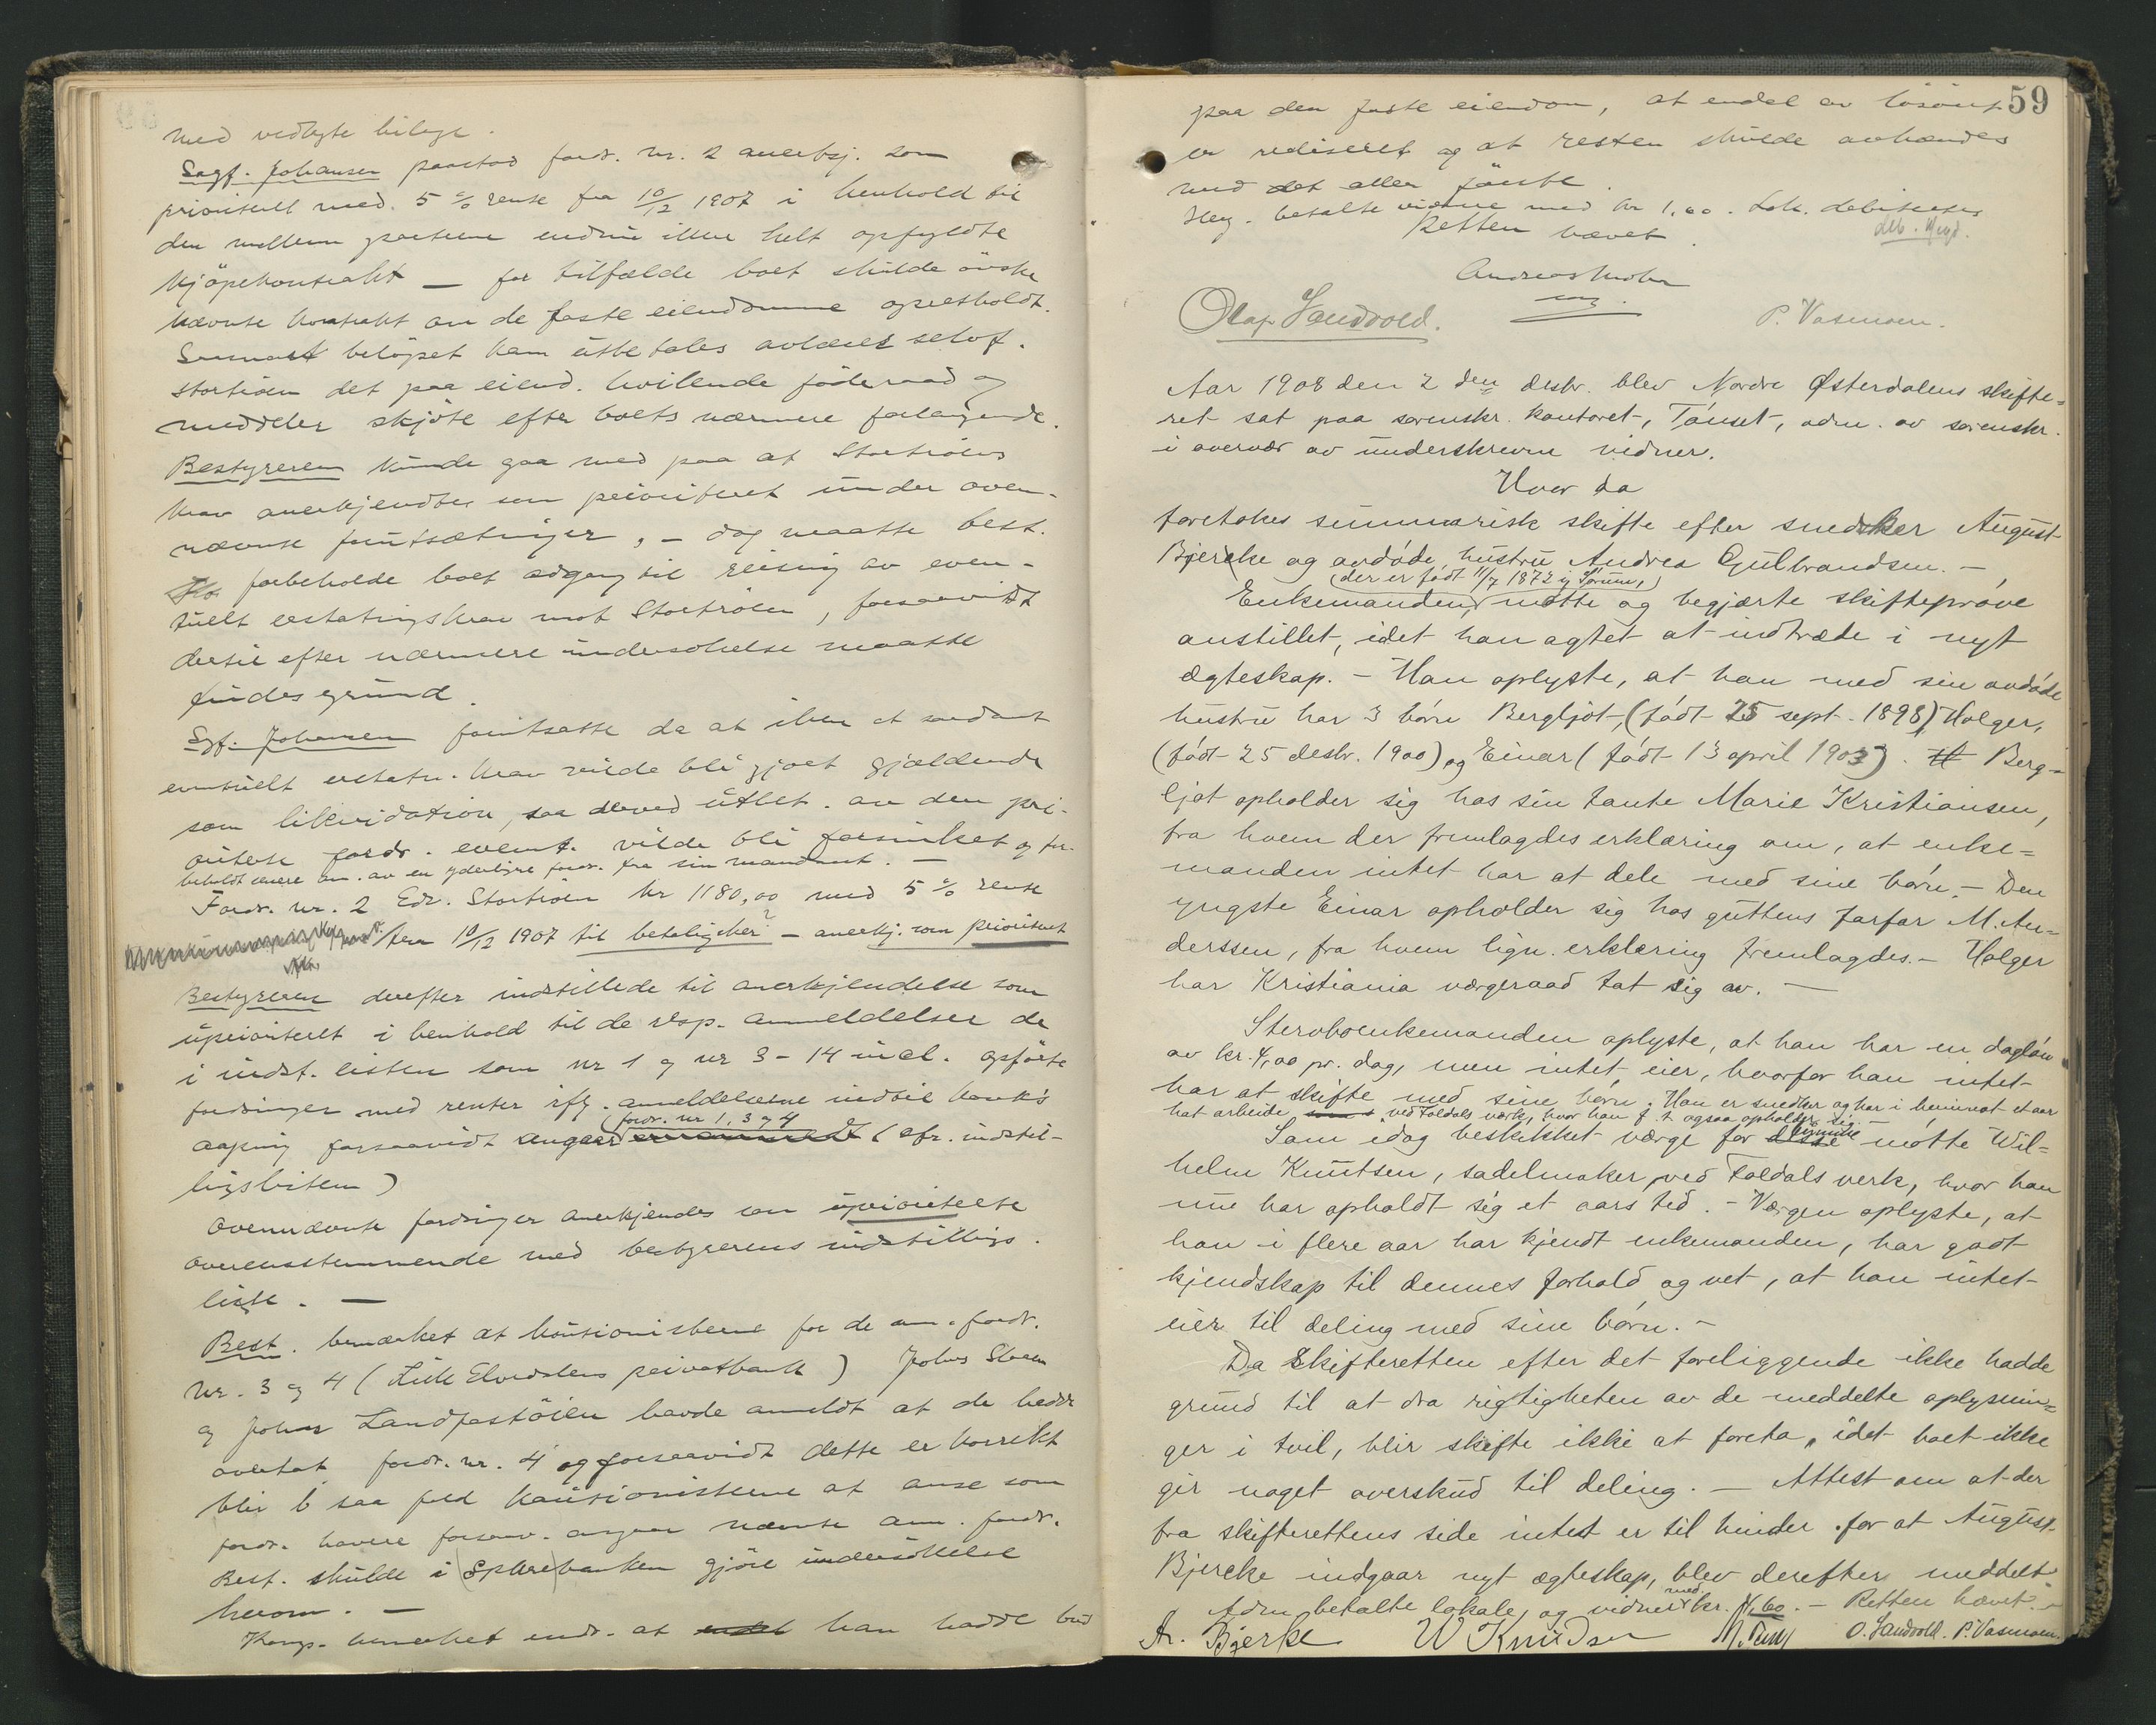 med vedlagte bilage.
Sagf. Johansen paastod fordr. nr. 2 anerkj. som
prioritert med 5 % rente fra 10/12 1907 i henhold til
den mellem parterne endnu ikke helt opfyldte
kjøpekontrakt — for tilfælde boet skulde ønske
nævnte kontrakt om de faste eiendomme opretholdt.
beløpet kan utbetales avløser
Storhøien det paa eiend. hvilende föderaad og
meddeler skjöte efter boets nærmere forlangende.
Bestyreren kunde gaa med paa at Storhøiens
krav anerkjendtes som prioritert under oven-
nævnte forutsætninger, — dog maatte best.
forbeholde boet adgang til reisning av even-
tuelt erstatningskrav mot Storhøien, forsaavidt
dertil efter nærmere undersøkelse maatte
findes grund.
Sgf. Johansen forutsatte da at ikke et saadant
eventuelt erstatn. krav vilde bli gjort gjældende
som likvidation, saa derved utbet. av den pri-
oriterte fordr. event. vilde bli forsinket og for-
beholdt senere an. av en yderligere fordr. fra sin mandant. —
Fordr. nr. 2 Edv. Storhøien kr 1180,00 med 5 % rente
fra 10/12 1907 til betaling sker — anerkj. som prioritert
Bestyreren derefter indstillede til anerkjendelse som
uprioritert i henhold til de resp. anmeldelser de
i indst. listen som nr 1 og nr 3 - 14 incl. opførte
fordringer med renter ifg. anmeldelserne indtil konk's
aapning forsaavidt angaar fordr. nr 1, 3 og 4 (cfr. indstil-
lingslisten)
Ovennævnte fordringer anerkjendes som uprioriterte
overensstemmende med bestyrerens indstillings-
liste. —
Best. bemærket at kautionisterne for de an. fordr.
nr. 3 og 4 (Lille Elvedalens privatbank) Johs Steen
og Johan Landfastøien havde anmeldt at de hadde
overtat fordr. nr. 4 og forsaavidt dette er korrekt
blir i saa fald kautionisterne at anse som
fordr. havere forsaav. angaar nævnte anm. fordr.
Best. skulde i Sparebanken gjöre undersökelse
herom. —
Kong. bemerket endv. at han hadde bud
59
paa den faste eiendom, at endel av lösöret
er realiseret og at resten skulde avhændes
med det aller förste.
betalte vidne med kr 1,60. Lok. debiteres
Retten hævet.
deb.
Andreas Mohr
Olaf Sandvold.
P. Vasmoen.
Aar 1908 den 2 den desbr. blev Nordre Østerdalens skifte-
ret sat paa sorenskr. kontoret, Tönset, adm. av sorenskr.
i overvær av underskrevne vidner.
Hvor da
foretokes summarisk skifte efter snedker August
Bjercke og avdöde hustru Andrea Gulbrandsen. —
(der er födt 11/7 1872 i Sörum,)
Enkemanden mötte og begjærte skifteprøve
anstillet, idet han agtet at indtræde i nyt
ægteskap. — Han oplyste, at han med sin avdöde
hustru har 3 börn Bergljot, (födt 25 sept. 1898) Holger,
(födt 25 desbr. 1900) og Einar (födt 13 april 1903). Berg-
ljot opholder sig hos sin tante Marie Kristiansen,
fra hvem der fremlagdes erklæring om, at enke-
manden intet har at dele med sine börn. — Den
yngste Einar opholder sig hos guttens farfar M. An-
derssen, fra hvem lign. erklæring fremlagdes. — Holger
har Kristiania vergeraad tat sig av. —
Stervboenkemanden oplyste, at han har en daglön
av kr. 4,00 pr. dag, men intet eier, hvorfor han intet
har at skifte med sine börn. Han er snedker og har i henimot et aar
hat arbeide ved Foldals verk, hvor han f. t. ogsaa opholder sig. —
Som idag beskikket værge for barnene mötte Wil-
helm Knutsen, sadelmaker ved Foldals verk, hvor han
nu har opholdt sig et aars tid. — Værgen oplyste, at
han i flere aar har kjendt enkemanden, har godt
kjendskap til dennes forhold og vet, at han intet
eier til deling med sine börn. —
Da skifteretten efter det foreliggende ikke hadde
grund til at dra rigtigheten av de meddelte oplysnin-
ger i tvil, blir skifte ikke at foreta, idet boet ikke
gir noget overskud til deling. — Attest om at der
fra skifterettens side intet er til hinder for at August
Bjercke indgaar nyt ægteskap, blev derefter meddelt
Adm. betalte lokale og vidner med kr. 1.60. — Retten hævet. —
A. Bjerke W Knudsen O. Sandvold. P. Vasmoen.